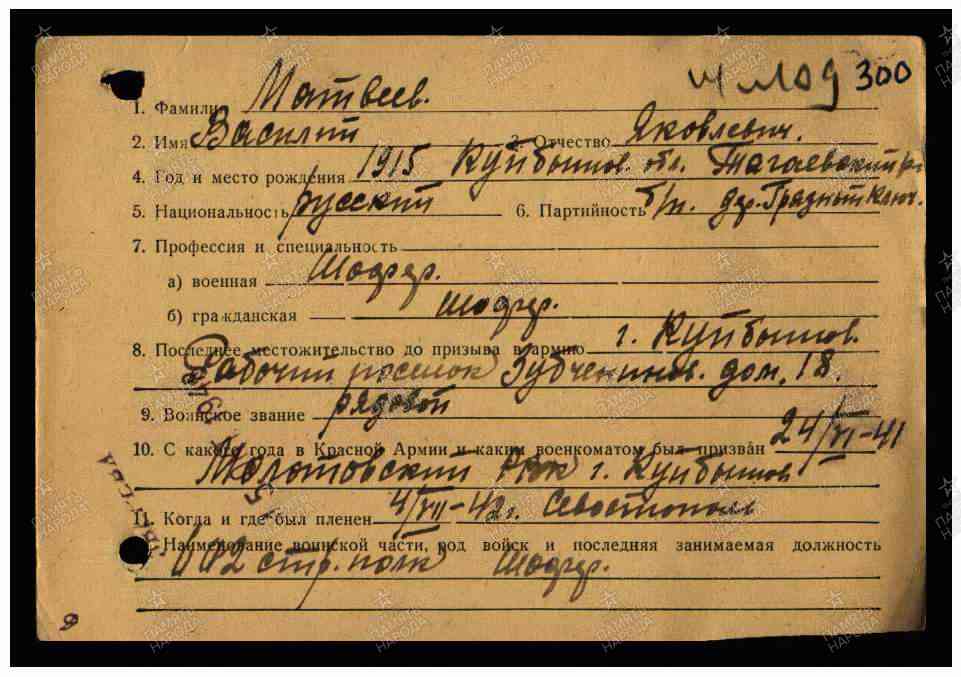 300
1. Фамилия Матвеев.
2. Имя Василий 3. Отчество Яковлевич.
4. Год и место рождения 1915 Куйбышов. обл. Тагаевский
5. Национальность русский 6. Партийность б/п. дер. Грязный Ключ.
7. Профессия и специальность
а) военная Шофер.
б) гражданская шофер.
8. Последнее местожительство до призыва в армию г. Куйбышов.
Рабочий поселок дом. 18.
9. Воинское звание рядовой
10. С какого года в Красной Армии и каким военкоматом был призван 24/VI-41
Молотовский РВК г. Куйбышов
11. Когда и где был пленен 4/VII-42г. Севостополь
Наименование воинской части, род войск и последняя занимаемая должность
602 стр. полк Шофер.
ПАМЯТЬ НАРОДА